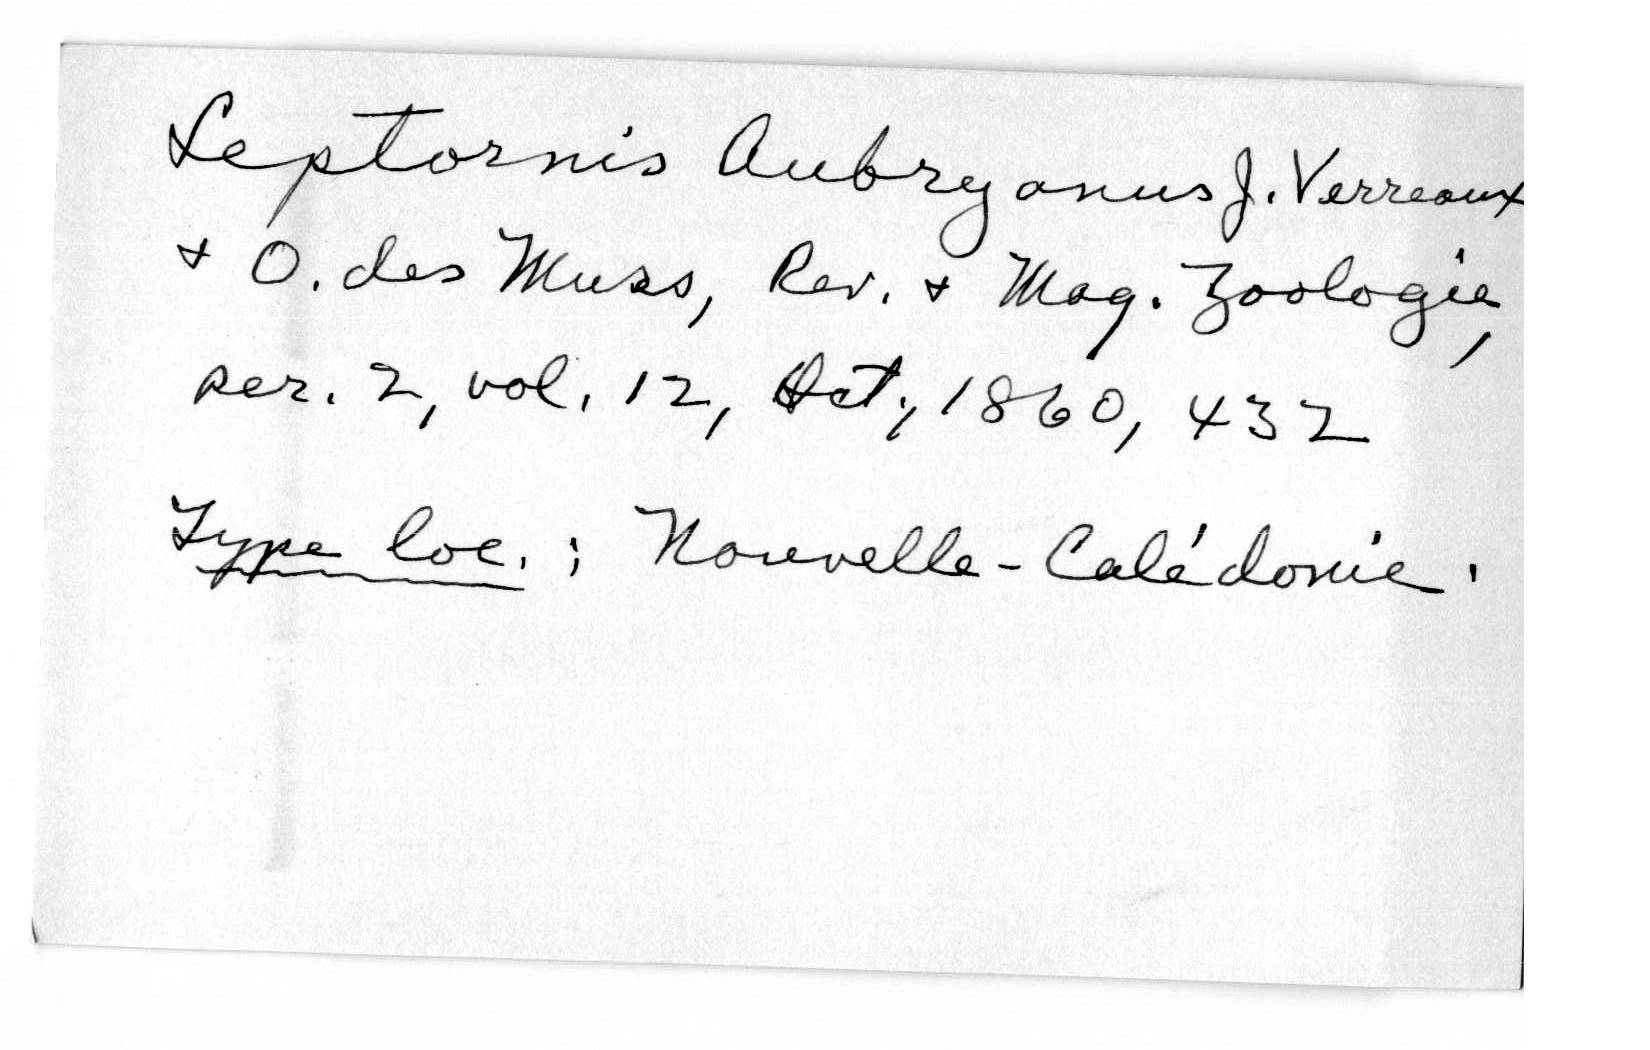 Leptornis Aubryanus J. Verreaux
& O. des Murs, Rev. & Mag. Zoologie,
ser. 2, vol. 12, Oct., 1860, 432
Type loc.: Nouvelle-Calédonie.